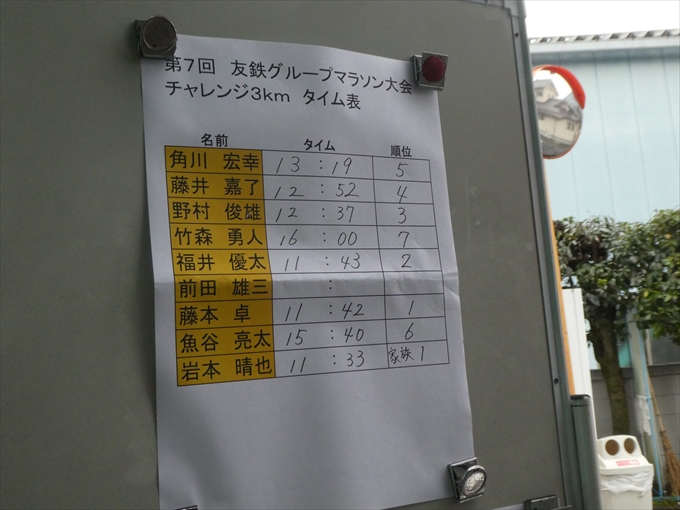 第7回 友鉄グループマラソン大会
チャレンジ3km タイム表
名前 タイム 順位
角川 宏幸 13:19 5
藤井 嘉了 12:52 4
野村 俊雄 12:37 3
竹森 勇人 16:00 7
福井 優太 11:43 2
前田 雄三 :
藤本 卓 11:42 1
魚谷 亮太 15:40 6
岩本 晴也 11:33 家族1